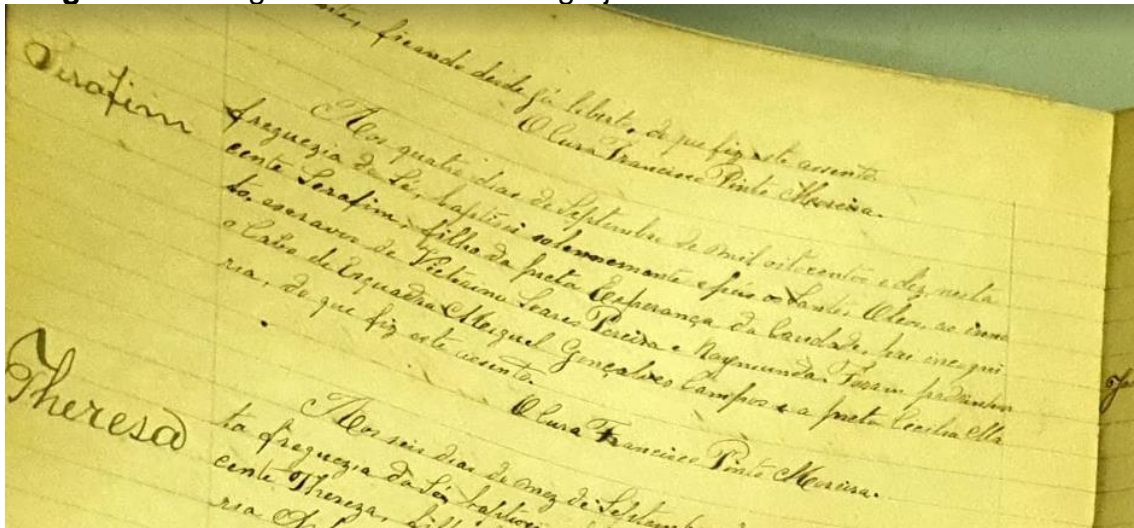 ficando desde já liberto, de que fiz este assento.
O Cura Francisco Pinto Moreira.
Serafim
Aos quatro dias de Septembro de mil oitocentos e dez, nesta
freguezia da Sé, baptisei solemnemente e puz os Santos Oleos ao inno
cente Serafim, filho da preta Esperança da Caridade, pai incogni
to, escravos de Victorino Soares Pereira e Raymunda. Foram padrinhos
o Cabo de Esquadra Miguel Gonçalves Campos e a preta Cecilia Ma
ria, do que fiz este assento.
O Cura Francisco Pinto Moreira.
Theresa
Aos seis dias do mez de Septembro
ta freguezia da Sé, baptisei
cente Thereza, filha
ria